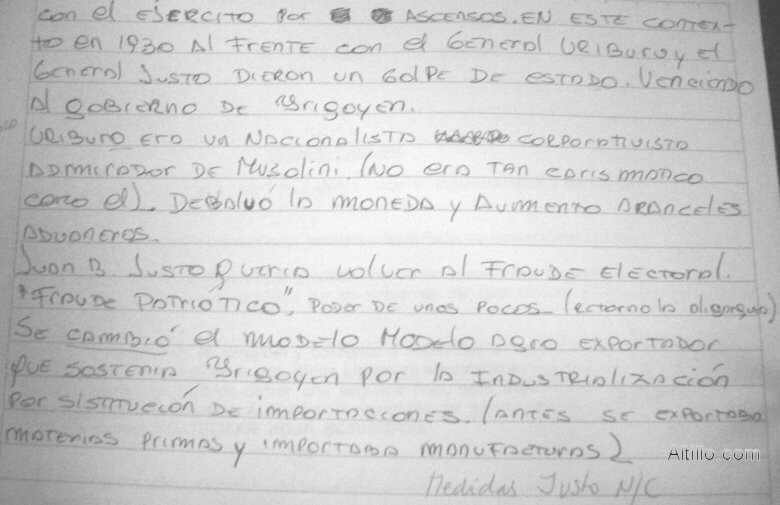 con el EJERCITO POR ASCENSOS. EN ESTE CONTEX-
TO en 1930 Al FRENTE con el General URIBURU y el
General JUSTO DIERON UN GOLPE DE ESTADO. Venciendo
Al GOBIERNO DE Yrigoyen.
URIBURO ERA UN NACIONALISTA CORPORATIVISTA
ADMIRADOR DE MUSOLINI. (NO ERA TAN CARISMATICO
como el). DEBALUÓ la MONEDA y AUMENTO ARANCELES
ADUANEROS.
Juan B. JUSTO QUERIA VOLVER Al FRAUDE ElECTORAl.
"FRAUDE PATRIÓTICO", PODER DE UNOS POCOS (RETORNO la oligarquia)
SE CAMBIÓ el MODELO MODELO AGRO EXPORTADOR
QUE SOSTENIA Yrigoyen POR la INDUSTRIALIZACIÓN
POR SISTITUCIÓN DE IMPORTACIONES. (ANTES SE EXPORTABA
MATERIAS PRIMAS y IMPORTABA MANUFACTURAS)
Altillo.com
Medidas Justo N/C